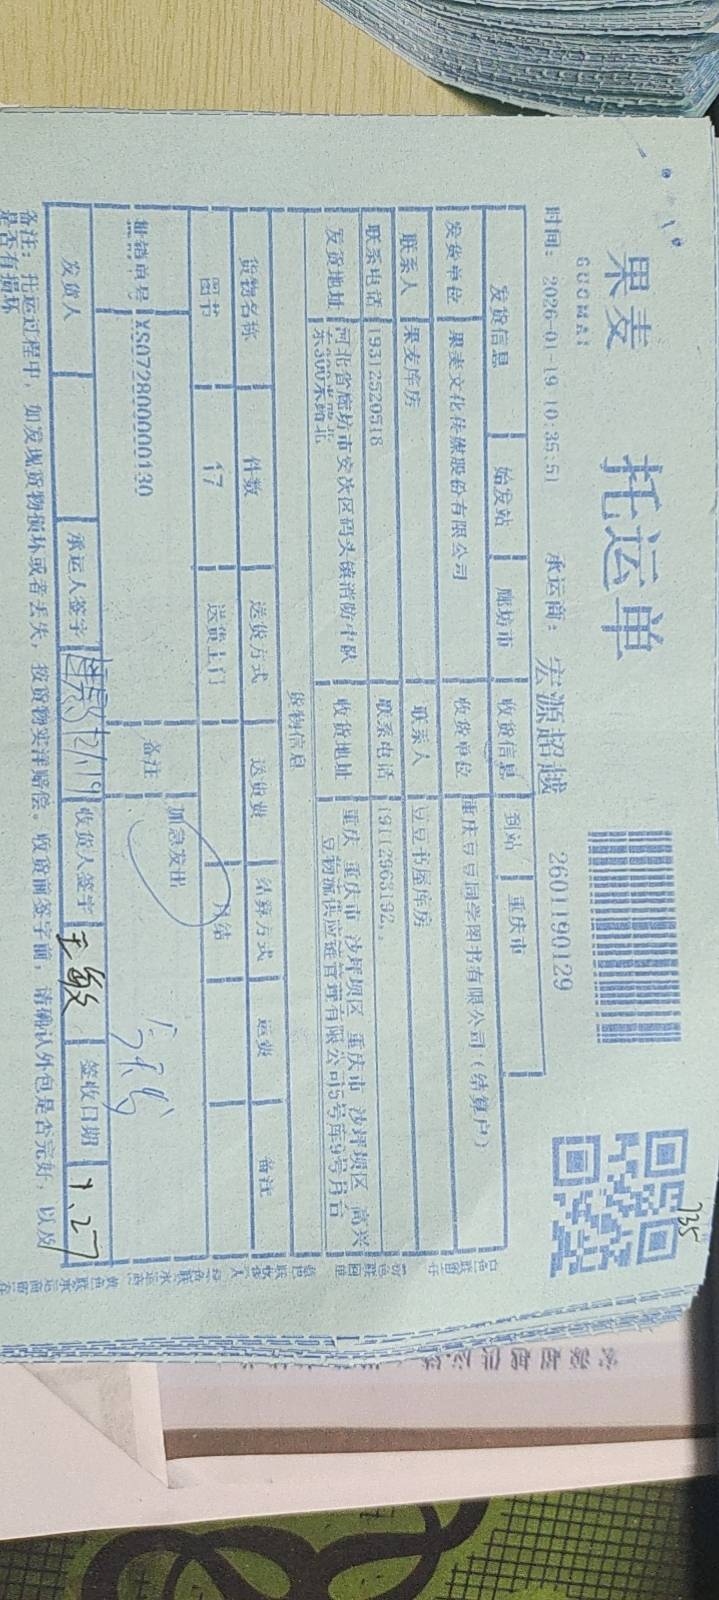 果麦 托运单
GUOMAI
时间: 2026-01-19 10:35:51 承运商: 宏源超越 2601190129
735
发货信息 始发站 廊坊市 收货信息 到站 重庆市
发货单位 果麦文化传媒股份有限公司 收货单位 重庆豆豆同学图书有限公司(结算户)
联系人 果麦库房 联系人 豆豆书屋库房
联系电话 19312520518 联系电话 19112963192
发货地址 河北省廊坊市安次区码头镇消防中队 收货地址 重庆 重庆市 沙坪坝区 重庆市 沙坪坝区 高兴
东300米路北 豆物流供应链管理有限公司5号库9号月台
货物信息
货物名称 件数 送货方式 送货费 结算方式 运费 备注
图书 17 送货上门 月结
推销单号 XS07280000130 备注 加急发出
发货人 承运人签字 收货人签字 王敏 签收日期 1.27
备注: 托运过程中, 如发现货物损坏或者丢失, 按货物实洋赔偿。收货前签字前, 请确认外包是否完好, 以及
是否有损坏